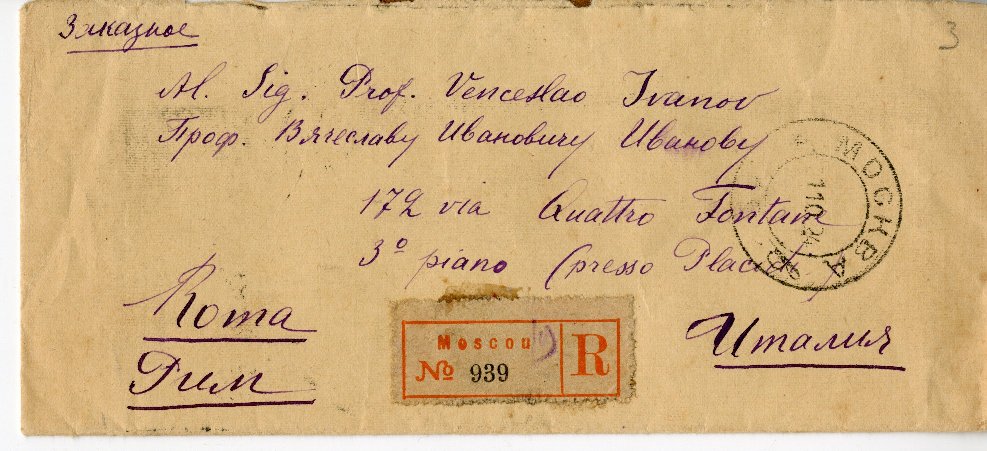 Заказное
3
Al. Sig. Prof. Venceslao Ivanov
Проф. Вячеславу Ивановичу Иванову
172 via Quattro Fontane
3º piano (presso Placidi)
МОСКВА
Roma
Рим
Италия
Moscou
№ 939
R